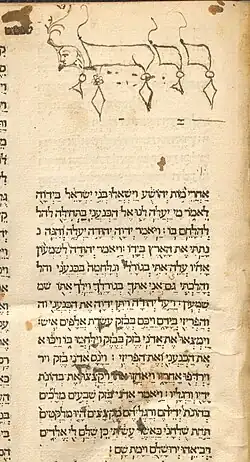 אחרי מות יהושע וישאלו בני ישראל ביהוה
לאמר מי יעלה לנו אל הכנעני בתחלה להל
להלחם בו׃ ויאמר יהוה יהודה יעלה הנה נ
נתתי את הארץ בידו׃ ויאמר יהודה לשמעון
אחיו עלה אתי בגורלי ונלחמה בכנעני והל
והלכתי גם אני אתך בגורלך וילך אתו שמ
שמעון׃ ויעל יהודה ויתן יהוה את הכנעני וה
והפרזי בידם ויכום בבזק עשרת אלפים איש׃
וימצאו את אדני בזק בבזק וילחמו בו ויכו א
את הכנעני ואת הפרזי׃ וינס אדני בזק ויר
וירדפו אחריו ויאחזו אתו ויקצצו את בהנות
ידיו ורגליו׃ ויאמר אדני בזק שבעים מלכים
בהנות ידיהם ורגליהם מקצצים היו מלקטים
תחת שלחני כאשר עשיתי כן שלם לי אלהים
ויביאהו ירושלם וימת שם׃